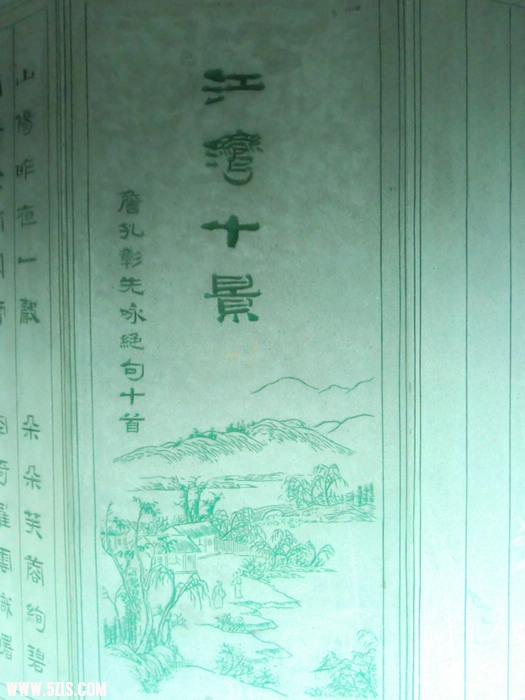 江灣十景
詹孔彰先咏絕句十首
山陽昨夜一
朵朵芙蓉絢碧
WWW.5ZLS.COM